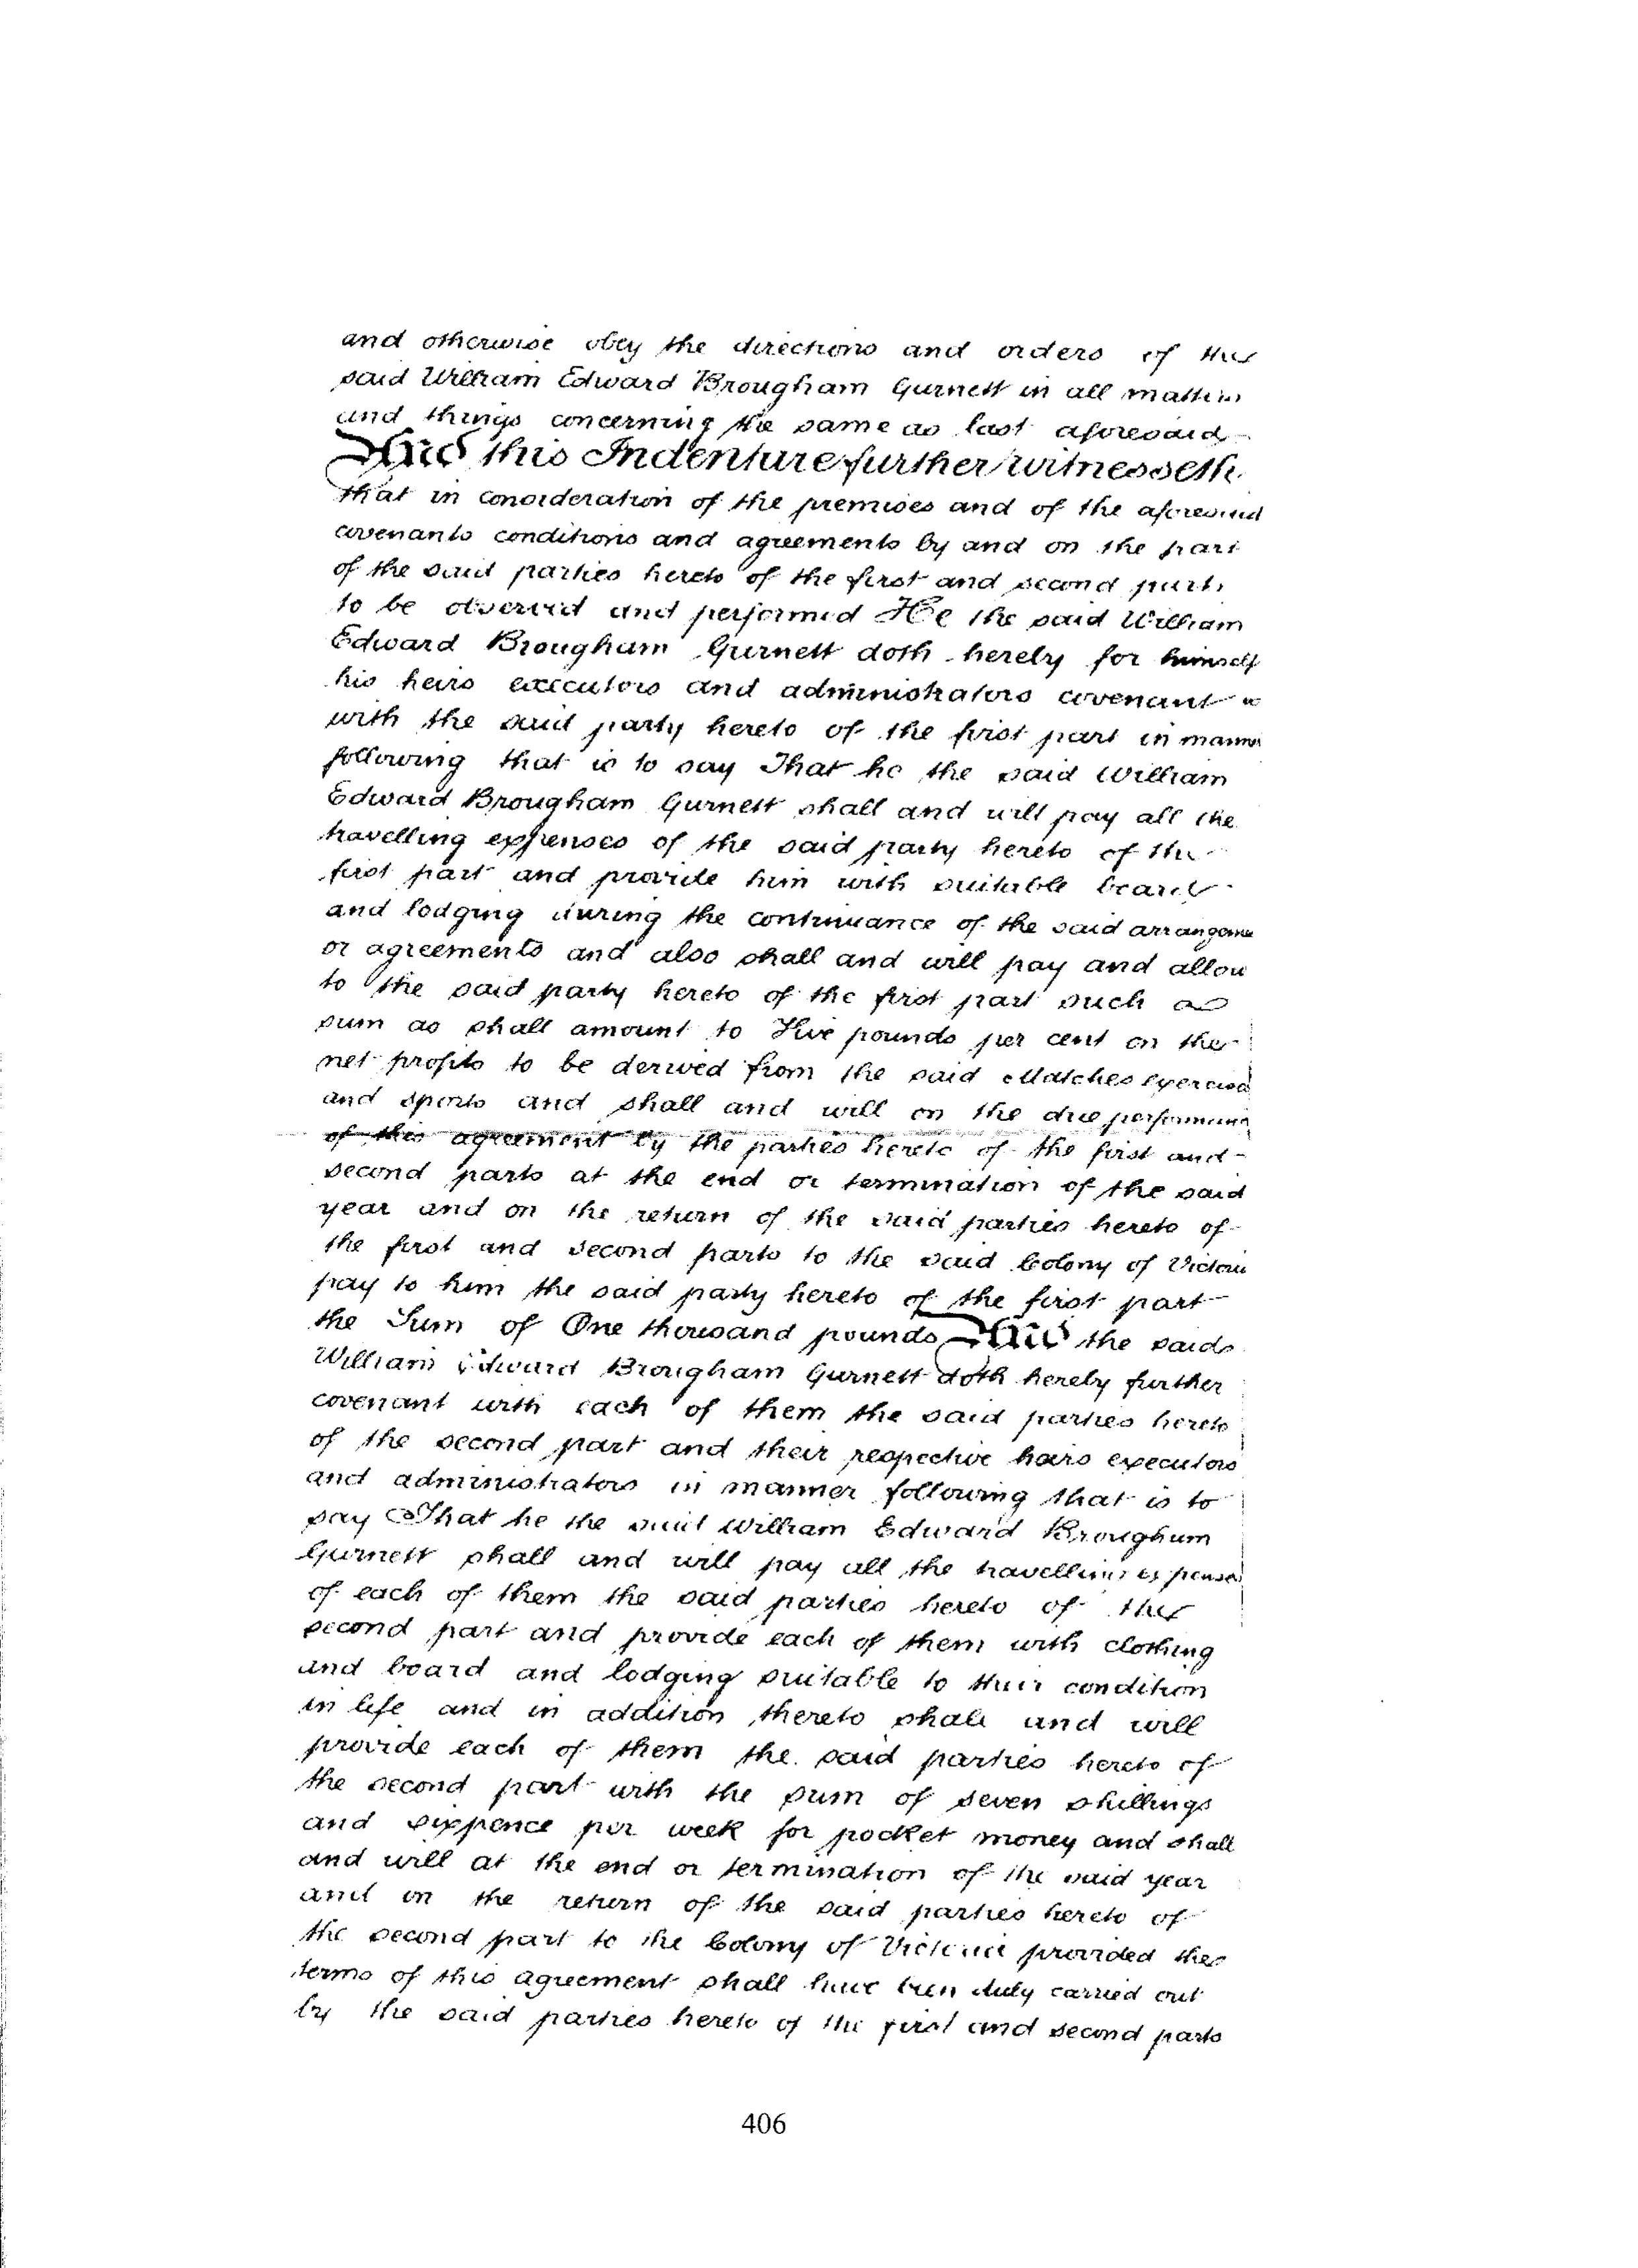 and otherwise obey the directions and orders of the
said William Edward Brougham Gurnett in all matters
and things concerning the same as last aforesaid
And this Indenture further witnesseth
that in consideration of the premises and of the aforesaid
covenants conditions and agreements by and on the part
of the said parties hereto of the first and second parts
to be observed and performed He the said William
Edward Brougham Gurnett doth hereby for himself
his heirs executors and administrators covenant
with the said party hereto of the first part in manner
following that is to say That he the said William
Edward Brougham Gurnett shall and will pay all the
travelling expenses of the said party hereto of the
first part and provide him with suitable board
and lodging during the continuance of the said arrangeme
or agreements and also shall and will pay and allow
to the said party hereto of the first part such a
sum as shall amount to Five pounds per cent on the
net profits to be derived from the said Matches exercises
and sports and shall and will on the due performance
of this agreement by the parties hereto of the first and
second parts at the end or termination of the said
year and on the return of the said parties hereto of
the first and second parts to the said Colony of Victoria
pay to him the said party hereto of the first part
the Sum of One thousand pounds And the said
William Edward Brougham Gurnett doth hereby further
covenant with each of them the said parties hereto
of the second part and their respective heirs executors
and administrators in manner following that is to
say That he the said William Edward Brougham
Gurnett shall and will pay all the travelling expenses
of each of them the said parties hereto of the
second part and provide each of them with clothing
and board and lodging suitable to their condition
in life and in addition thereto shall and will
provide each of them the said parties hereto of
the second part with the sum of seven shillings
and sixpence per week for pocket money and shall
and will at the end or termination of the said year
and on the return of the said parties hereto of
the second part to the Colony of Victoria provided the
terms of this agreement shall have been duly carried out
by the said parties hereto of the first and second parts
406